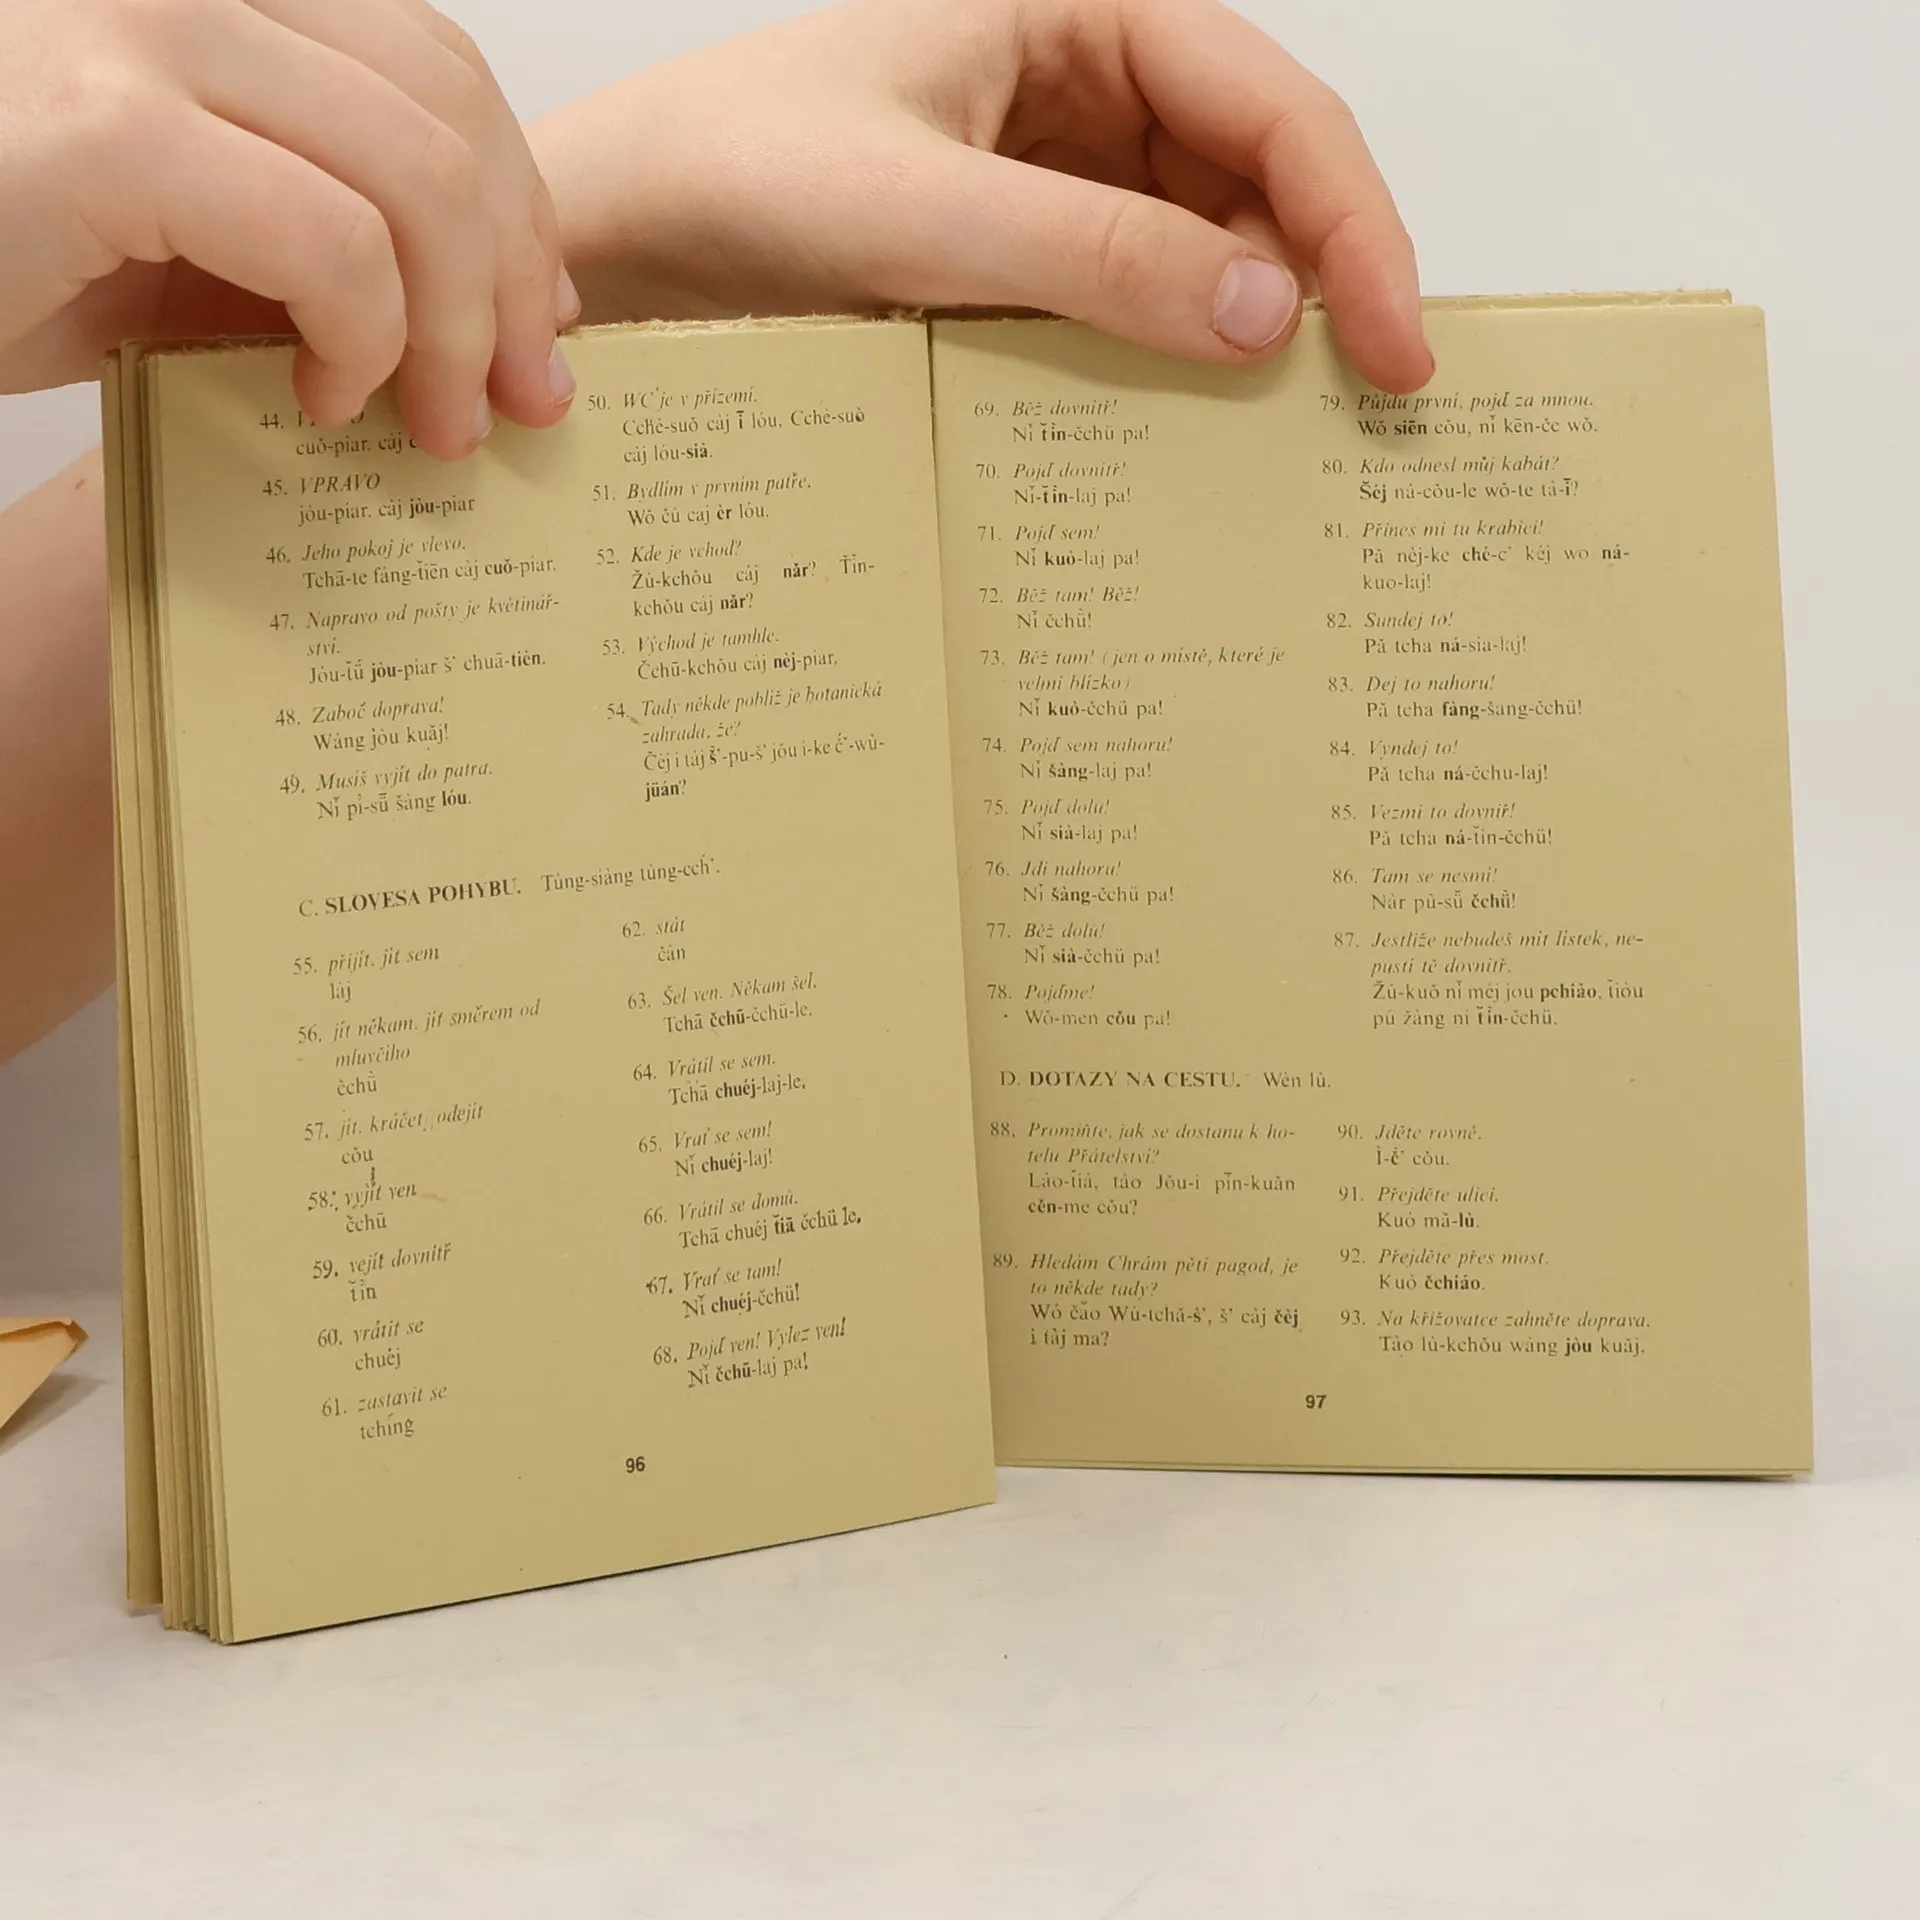 44.
cuǒ-piar. càj
45. VPRAVO
jòu-piar. càj jòu-piar
46. Jeho pokoj je vlevo.
Tchā-te fáng-ťiēn càj cuǒ-piar.
47. Napravo od pošty je květinář-
ství.
Jóu-ťǘ jòu-piar š' chuā-tièn.
48. Zaboč doprava!
Wáng jòu kuǎj!
49. Musíš vyjít do patra.
Nǐ pì-sǖ šàng lóu.
50. WC je v přízemí.
Cchè-suǒ càj ī lóu. Cchè-suǒ
càj lóu-sià.
51. Bydlím v prvním patře.
Wǒ čù caj èr lóu.
52. Kde je vchod?
Žù-kchǒu càj nǎr? Ťìn-
kchǒu càj nǎr?
53. Východ je tamhle.
Čchū-kchǒu càj nèj-piar.
54. Tady někde poblíž je botanická
zahrada, že?
Čèj i tàj š'-pu-š' jǒu i-ke č'-wù-
jüán?
C. SLOVESA POHYBU. Tùng-siàng tùng-cch'.
55. přijít. jít sem
láj
56. jít někam. jít směrem od
mluvčího
čchǜ
57. jít. kráčet, odejít
cǒu
58. vyjít ven
čchū
59. vejít dovnitř
ťìn
60. vrátit se
chuéj
61. zastavit se
tchíng
62. stát
čàn
63. Šel ven. Někam šel.
Tchā čchū-čchü-le.
64. Vrátil se sem.
Tchā chuéj-laj-le.
65. Vrať se sem!
Nǐ chuéj-laj!
66. Vrátil se domů.
Tchā chuéj ťiā čchü le.
67. Vrať se tam!
Nǐ chuéj-čchü!
68. Pojď ven! Vylez ven!
Nǐ čchū-laj pa!
96
69. Běž dovnitř!
Nǐ ťìn-čchü pa!
70. Pojď dovnitř!
Nǐ-ťìn-laj pa!
71. Pojď sem!
Nǐ kuò-laj pa!
72. Běž tam! Běž!
Nǐ čchǜ!
73. Běž tam! (jen o místě, které je
velmi blízko)
Nǐ kuò-čchü pa!
74. Pojď sem nahoru!
Nǐ šàng-laj pa!
75. Pojď dolů!
Nǐ sià-laj pa!
76. Jdi nahoru!
Nǐ šàng-čchü pa!
77. Běž dolů!
Nǐ sià-čchü pa!
78. Pojďme!
Wǒ-men cǒu pa!
79. Půjdu první, pojď za mnou.
Wǒ siēn cǒu, nǐ kēn-če wǒ.
80. Kdo odnesl můj kabát?
Šéj ná-cǒu-le wǒ-te tà-ī?
81. Přines mi tu krabici!
Pǎ nèj-ke ché-c' kéj wo ná-
kuo-laj!
82. Sundej to!
Pǎ tcha ná-sia-laj!
83. Dej to nahoru!
Pǎ tcha fàng-šang-čchü!
84. Vyndej to!
Pǎ tcha ná-čchu-laj!
85. Vezmi to dovniř!
Pǎ tcha ná-ťin-čchü!
86. Tam se nesmí!
Nàr pù-sǚ čchǜ!
87. Jestliže nebudeš mít lístek, ne-
pustí tě dovnitř.
Žú-kuǒ nǐ méj jou pchiào, ťiòu
pú žàng ni ťìn-čchü.
D. DOTAZY NA CESTU. Wèn lù.
88. Promiňte, jak se dostanu k ho-
telu Přátelství?
Láo-ťià, tào Jǒu-i pīn-kuǎn
cěn-me cǒu?
89. Hledám Chrám pěti pagod, je
to někde tady?
Wó čǎo Wú-tchǎ-š', š' càj čèj
i tàj ma?
90. Jděte rovně.
Ì-č' cǒu.
91. Přejděte ulici.
Kuò mǎ-lù.
92. Přejděte přes most.
Kuò čchiáo.
93. Na křižovatce zahněte doprava.
Tào lù-kchǒu wáng jòu kuǎj.
97